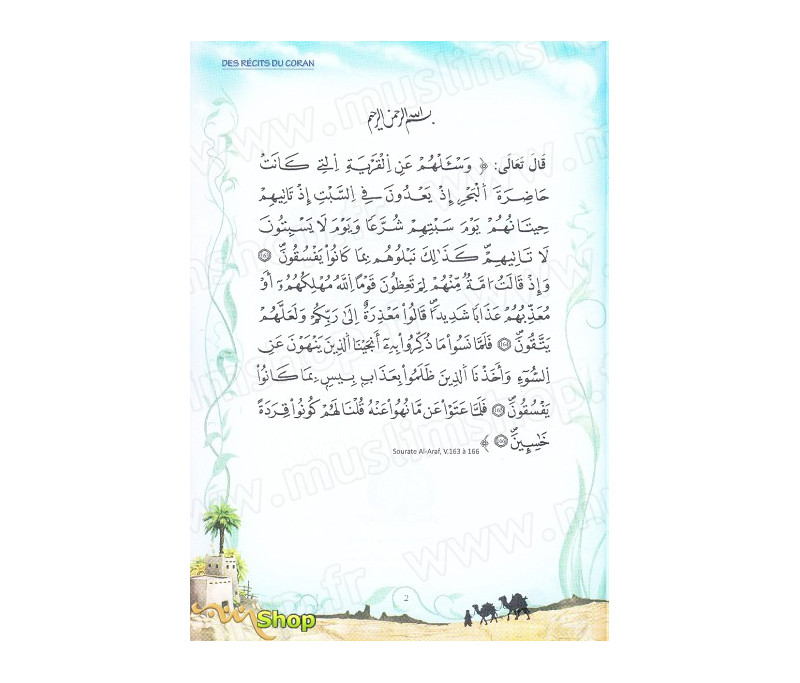 DES RÉCITS DU CORAN
بسم الله الرحمن الرحيم
قَالَ تَعَالَى: ﴿ وَسْـَٔلْهُمْ عَنِ اِ۬لْقَرْيَةِ اِ۬لتِے كَانَتْ
حَاضِرَةَ اَ۬لْبَحْرِ إِذْ يَعْدُونَ فِے اِ۬لسَّبْتِ إِذْ تَاتِيهِمْ
حِيتَانُهُمْ يَوْمَ سَبْتِهِمْ شُرَّعاٗ وَيَوْمَ لَا يَسْبِتُونَ
لَا تَاتِيهِمْۖ كَذَٰلِكَ نَبْلُوهُم بِمَا كَانُواْ يَفْسُقُونَۖ
وَإِذْ قَالَتُ ا۟مَّةٞ مِّنْهُمْ لِمَ تَعِظُونَ قَوْماً اِ۬للَّهُ مُهْلِكُهُمُۥٓ أَوْ
مُعَذِّبُهُمْ عَذَاباٗ شَدِيداٗۖ قَالُواْ مَعْذِرَةٌ إِلَىٰ رَبِّكُمْ وَلَعَلَّهُمْ
يَتَّقُونَۖ فَلَمَّا نَسُواْ مَا ذُكِّرُواْ بِهِۦٓ أَنجَيْنَا اَ۬لذِينَ يَنْهَوْنَ عَنِ
اِ۬لسُّوٓءِ وَأَخَذْنَا اَ۬لذِينَ ظَلَمُواْ بِعَذَابِۢ بِيسِۢ بِمَا كَانُواْ
يَفْسُقُونَۖ فَلَمَّا عَتَوْاْ عَن مَّا نُهُواْ عَنْهُ قُلْنَا لَهُمْ كُونُواْ قِرَدَةً
خَٰسِـِٕينَۖ ﴾
Sourate Al-Araf, V.163 à 166
2
Shop
www.muslimshop.fr